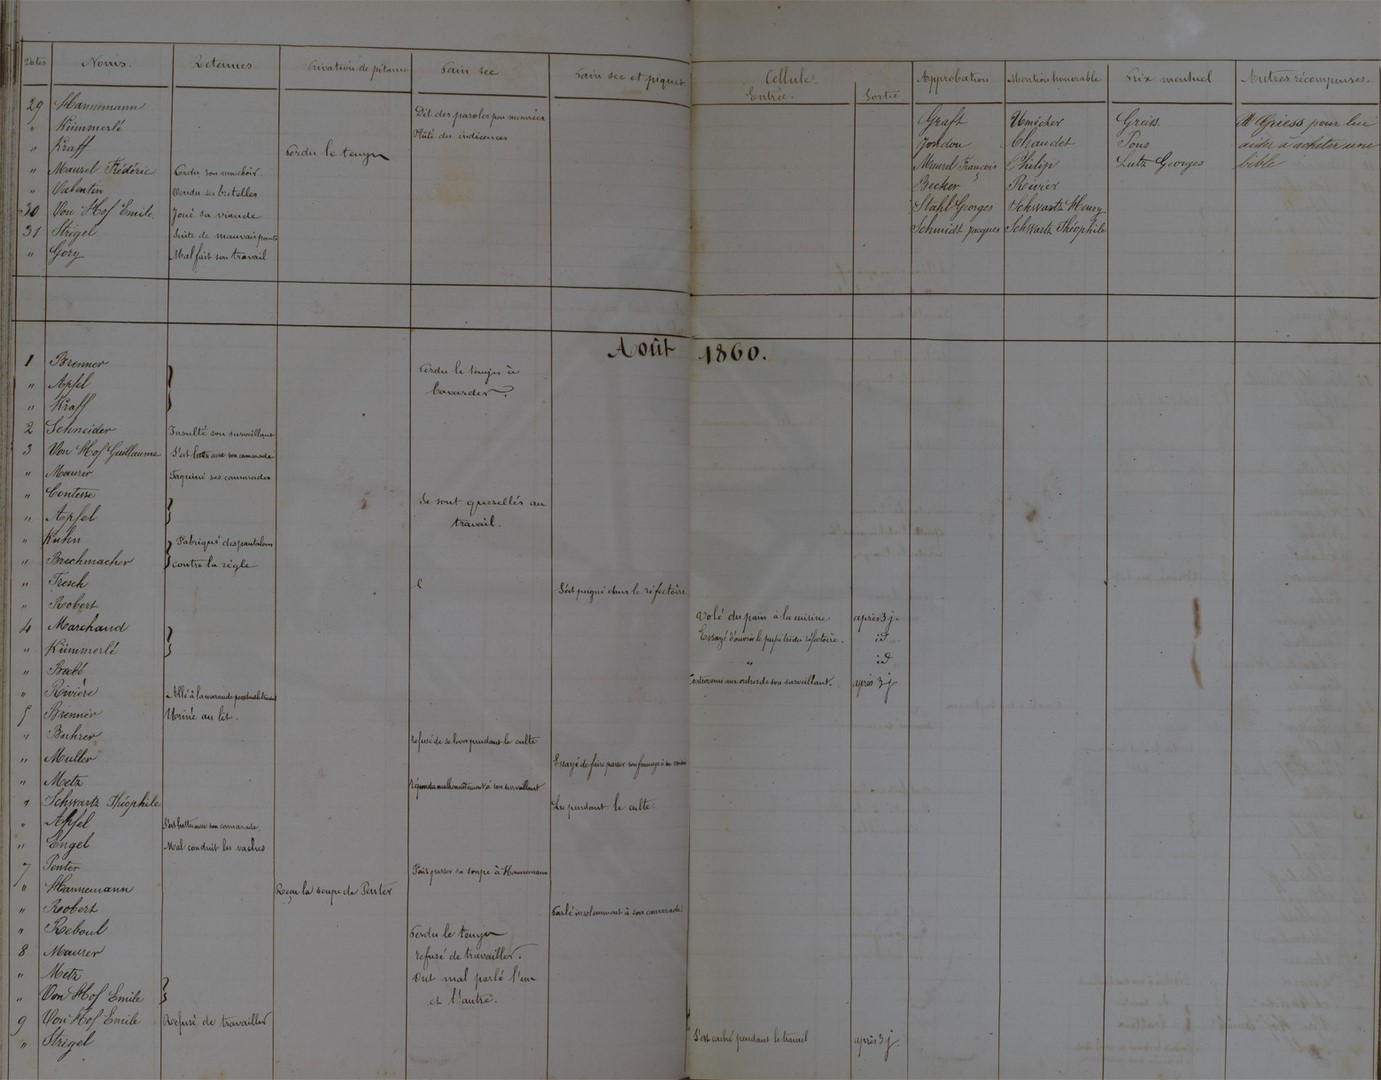 Dates Noms. Retenues Privation de pitance Pain sec Pain sec et piquet Cellule. Entrée. Sortie Approbation Mention honorable Prix mensuel Autres récompenses.
29 Hannemann Dit des paroles peu mesurées Graft Umécher Greiss. M Griess pour lui
" Kümmerlé des indécences Jondon Chaudet Pons aider à acheter une
" Kraff Perdu le temps Meurel François Philip Lutz Georges bible
" Maurel Frédéric Perdu son mouchoir. Becker Rivier
" Valentin Vendu ses bretelles Stahl Georges Schwartz Henry
30 Von Hof Emile. Joué sa viande Schmidt Jacques Schwartz Théophile
31 Strigel Suite de mauvais points
" Göry Mal fait son travail
Août 1860.
1 Brenner Perdu le temps à
" Apfel bavarder.
" Kraff
2 Schneider Insulté son surveillant
3 Von Hof Guillaume S'est battu avec son camarade
" Maurer Taquiné ses camarades
" Contesse Se sont querellés au
" Apfel travail.
" Kuhn Fabriqué des pantalons
" Brechmacher contre la règle
" Tresch S'est peigné dans le réfectoire.
" Robert Volé du pain à la cuisine après 3 j.
4 Marchand Essayé d'ouvrir le pupitre du réfectoire. id
" Kümmerlé " id
" Brubé Contrevenu aux ordres de son surveillant. après 3 j
" Rivière Allé à la maraude
5 Brenner Uriné au lit.
" Buhrer Refusé de se lever pendant le culte
" Muller Essayé de faire passer son fromage à un
" Metz Répondu malhonnêtement à son surveillant
" Schwartz Théophile Lu pendant le culte.
" Apfel S'est battu avec son camarade.
" Engel Mal conduit les vaches
7 Penter Fait passer sa soupe à Hannemann
" Hannemann Reçu la soupe de Penter
" Robert Parlé insolemment à son camarade
" Reboul Perdu le temps
8 Maurer Refusé de travailler.
" Metz Ont mal parlé l'un
" Von Hof Emile et l'autre.
9 Von Hof Emile Refusé de travailler
" Strigel S'est caché pendant le travail après 3 j.